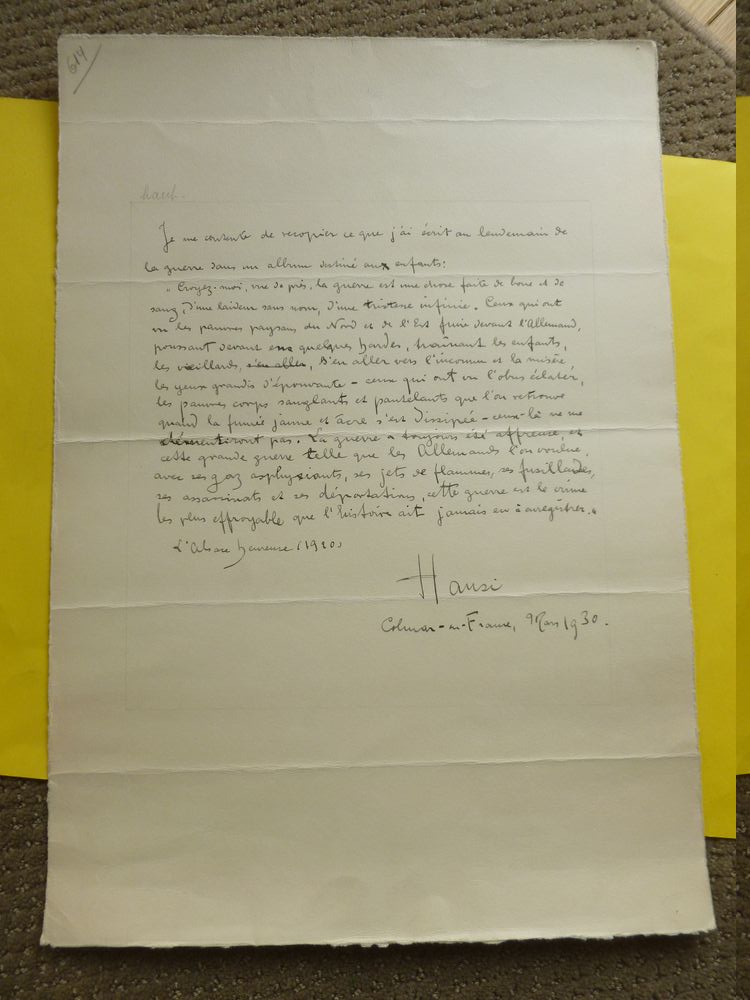 614
haut.
Je me contente de recopier ce que j'ai écrit au lendemain de
la guerre dans un album destiné aux enfants:
" Croyez-moi, vue de près, la guerre est une chose faite de boue et de
sang, d'une laideur sans nom, d'une tristesse infinie. Ceux qui ont
vu les pauvres paysans du Nord et de l'Est fuir devant l'Allemand,
poussant devant eux quelques hardes, traînant les enfants,
les vieillards, s'en aller, s'en aller vers l'inconnu et la misère
les yeux grandis d'épouvante - ceux qui ont vu l'obus éclater,
les pauvres corps sanglants et pantelants que l'on retrouve
quand la fumée jaune et âcre s'est dissipée - ceux-là ne me
démentiront pas. La guerre a toujours été affreuse, et
cette grande guerre telle que les Allemands l'on voulue,
avec ses gaz asphyxiants, ses jets de flammes, ses fusillades,
ses assassinats et ses déportations, cette guerre est le crime
les plus effroyable que l'histoire ait jamais eu à enregistrer. "
L'Alsace heureuse (1920)
Hansi
Colmar-en-France, Mars 1930.